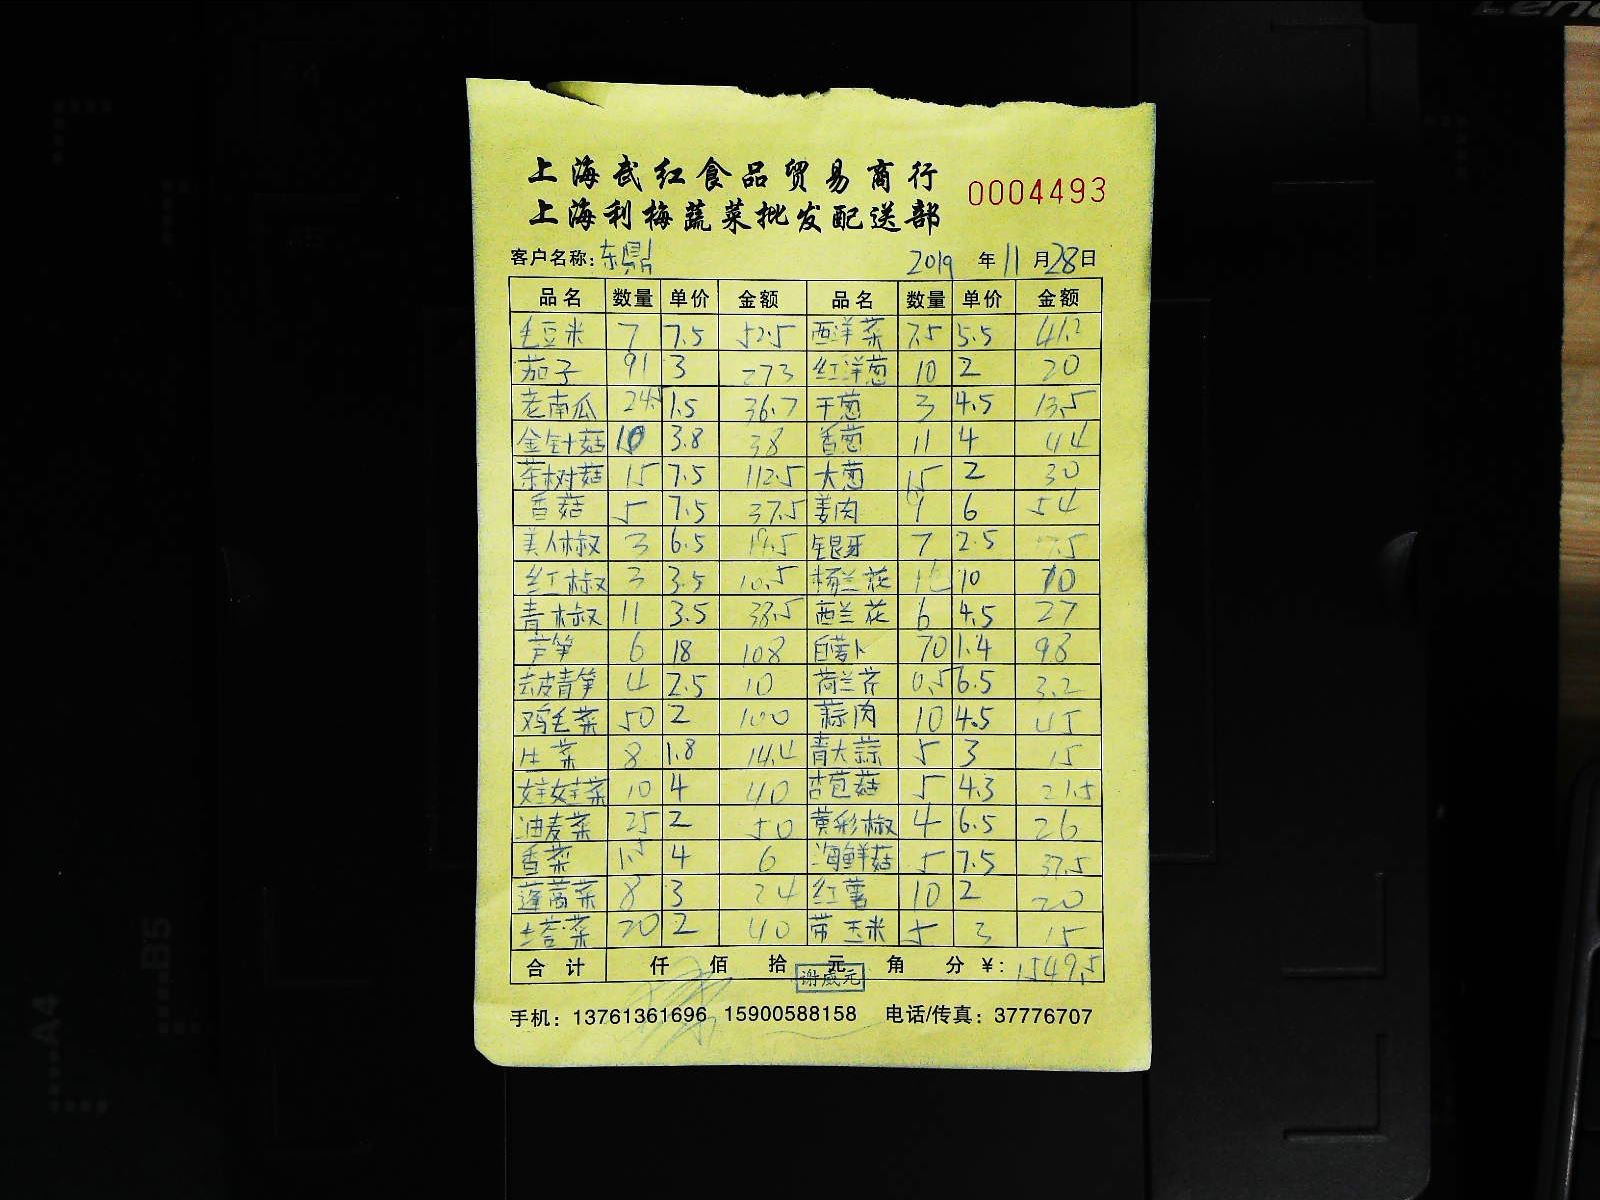 上海武红食品贸易商行
上海利梅蔬菜批发配送部
0004493
客户名称：东鼎 2019 年 11 月 28 日
品名 数量 单价 金额 品名 数量 单价 金额
毛豆米 7 7.5 52.5 西洋菜 7.5 5.5 41.2
茄子 91 3 273 红洋葱 10 2 20
老南瓜 24.5 1.5 36.7 干葱 3 4.5 13.5
金针菇 10 3.8 38 香葱 11 4 44
茶树菇 15 7.5 112.5 大葱 15 2 30
香菇 5 7.5 37.5 姜肉 9 6 54
美人椒 3 6.5 19.5 银牙 7 2.5 17.5
红椒 3 3.5 10.5 杨兰花 10 10
青椒 11 3.5 38.5 西兰花 6 4.5 27
芦笋 6 18 108 白萝卜 70 1.4 98
去皮青笋 4 2.5 10 荷兰芹 0.5 6.5 3.2
鸡毛菜 50 2 100 蒜肉 10 4.5 45
生菜 8 1.8 14.4 青大蒜 5 3 15
娃娃菜 10 4 40 杏苞菇 5 4.3 21.5
油麦菜 25 2 50 黄彩椒 4 6.5 26
香菜 1.5 4 6 海鲜菇 5 7.5 37.5
蓬蒿菜 8 3 24 红薯 10 2 20
塔菜 20 2 40 带玉米 5 3 15
合计 仟 佰 拾 元 角 分 ¥: 1549.5
谢威元
手机：13761361696 15900588158 电话/传真：37776707
Lenovo
B5
A4